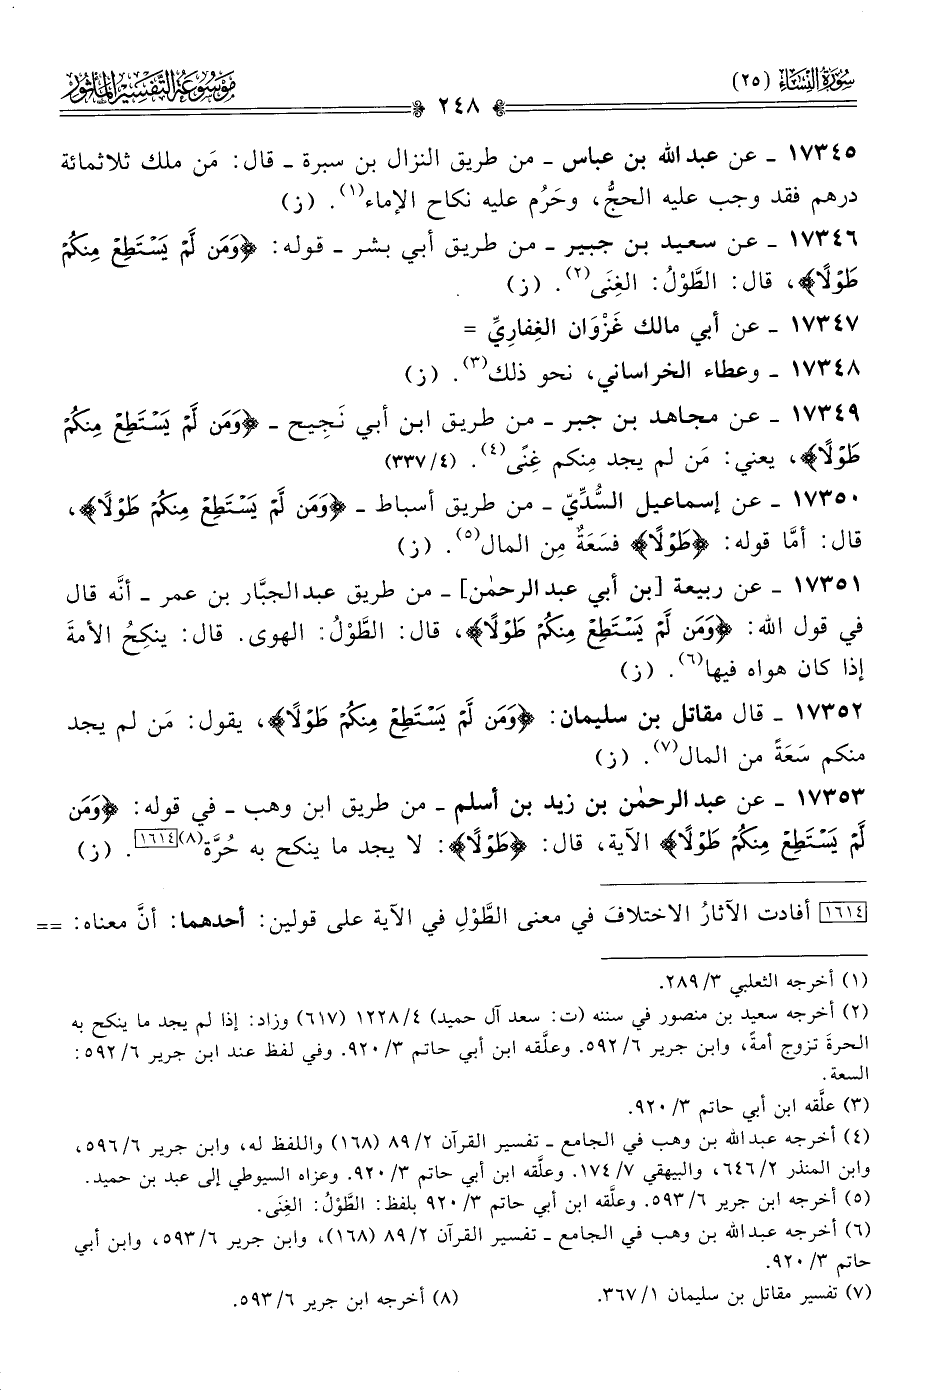 سورة النساء (٢٥)
موسوعة التفسير المأثور
٢٤٨
١٧٣٤٥ ـ عن عبد الله بن عباس ـ من طريق النزال بن سبرة ـ قال: مَن ملك ثلاثمائة
درهم فقد وجب عليه الحجُّ، وحَرُم عليه نكاح الإماء(١). (ز)
١٧٣٤٦ ـ عن سعيد بن جبير ـ من طريق أبي بشر ـ قوله: ﴿وَمَن لَّمْ يَسْتَطِعْ مِنكُمْ
طَوْلًا﴾، قال: الطَّوْلُ: الغِنَى(٢). (ز)
١٧٣٤٧ ـ عن أبي مالك غَزْوَان الغِفاريِّ =
١٧٣٤٨ ـ وعطاء الخراساني، نحو ذلك(٣). (ز)
١٧٣٤٩ ـ عن مجاهد بن جبر ـ من طريق ابن أبي نَجِيح ـ ﴿وَمَن لَّمْ يَسْتَطِعْ مِنكُمْ
طَوْلًا﴾، يعني: مَن لم يجد مِنكم غِنًى(٤). (٤/ ٣٣٧)
١٧٣٥٠ ـ عن إسماعيل السُّدِّيّ ـ من طريق أسباط ـ ﴿وَمَن لَّمْ يَسْتَطِعْ مِنكُمْ طَوْلًا﴾،
قال: أمَّا قوله: ﴿طَوْلًا﴾ فسَعَةٌ مِن المال(٥). (ز)
١٧٣٥١ ـ عن ربيعة [بن أبي عبد الرحمٰن] ـ من طريق عبد الجبَّار بن عمر ـ أنَّه قال
في قول الله: ﴿وَمَن لَّمْ يَسْتَطِعْ مِنكُمْ طَوْلًا﴾، قال: الطَّوْلُ: الهوى. قال: ينكِحُ الأمةَ
إذا كان هواه فيها(٦). (ز)
١٧٣٥٢ ـ قال مقاتل بن سليمان: ﴿وَمَن لَّمْ يَسْتَطِعْ مِنكُمْ طَوْلًا﴾، يقول: مَن لم يجد
منكم سَعَةً من المال(٧). (ز)
١٧٣٥٣ ـ عن عبد الرحمٰن بن زيد بن أسلم ـ من طريق ابن وهب ـ في قوله: ﴿وَمَن
لَّمْ يَسْتَطِعْ مِنكُمْ طَوْلًا﴾ الآية، قال: ﴿طَوْلًا﴾: لا يجد ما ينكح به حُرَّة(٨)[١٦١٤]. (ز)
[١٦١٤] أفادت الآثارُ الاختلافَ في معنى الطَّوْلِ في الآية على قولين: أحدهما: أنَّ معناه: ==
(١) أخرجه الثعلبي ٣/ ٢٨٩.
(٢) أخرجه سعيد بن منصور في سننه (ت: سعد آل حميد) ٤/ ١٢٢٨ (٦١٧) وزاد: إذا لم يجد ما ينكح به
الحرةَ تزوج أمةً، وابن جرير ٦/ ٥٩٢. وعلَّقه ابن أبي حاتم ٣/ ٩٢٠. وفي لفظ عند ابن جرير ٦/ ٥٩٢:
السعة.
(٣) علَّقه ابن أبي حاتم ٣/ ٩٢٠.
(٤) أخرجه عبد الله بن وهب في الجامع ـ تفسير القرآن ٢/ ٨٩ (١٦٨) واللفظ له، وابن جرير ٦/ ٥٩٦،
وابن المنذر ٢/ ٦٤٦، والبيهقي ٧/ ١٧٤. وعلَّقه ابن أبي حاتم ٣/ ٩٢٠. وعزاه السيوطي إلى عبد بن حميد.
(٥) أخرجه ابن جرير ٦/ ٥٩٣. وعلَّقه ابن أبي حاتم ٣/ ٩٢٠ بلفظ: الطَّوْلُ: الغِنَى.
(٦) أخرجه عبد الله بن وهب في الجامع ـ تفسير القرآن ٢/ ٨٩ (١٦٨)، وابن جرير ٦/ ٥٩٣، وابن أبي
حاتم ٣/ ٩٢٠.
(٧) تفسير مقاتل بن سليمان ١/ ٣٦٧.
(٨) أخرجه ابن جرير ٦/ ٥٩٣.